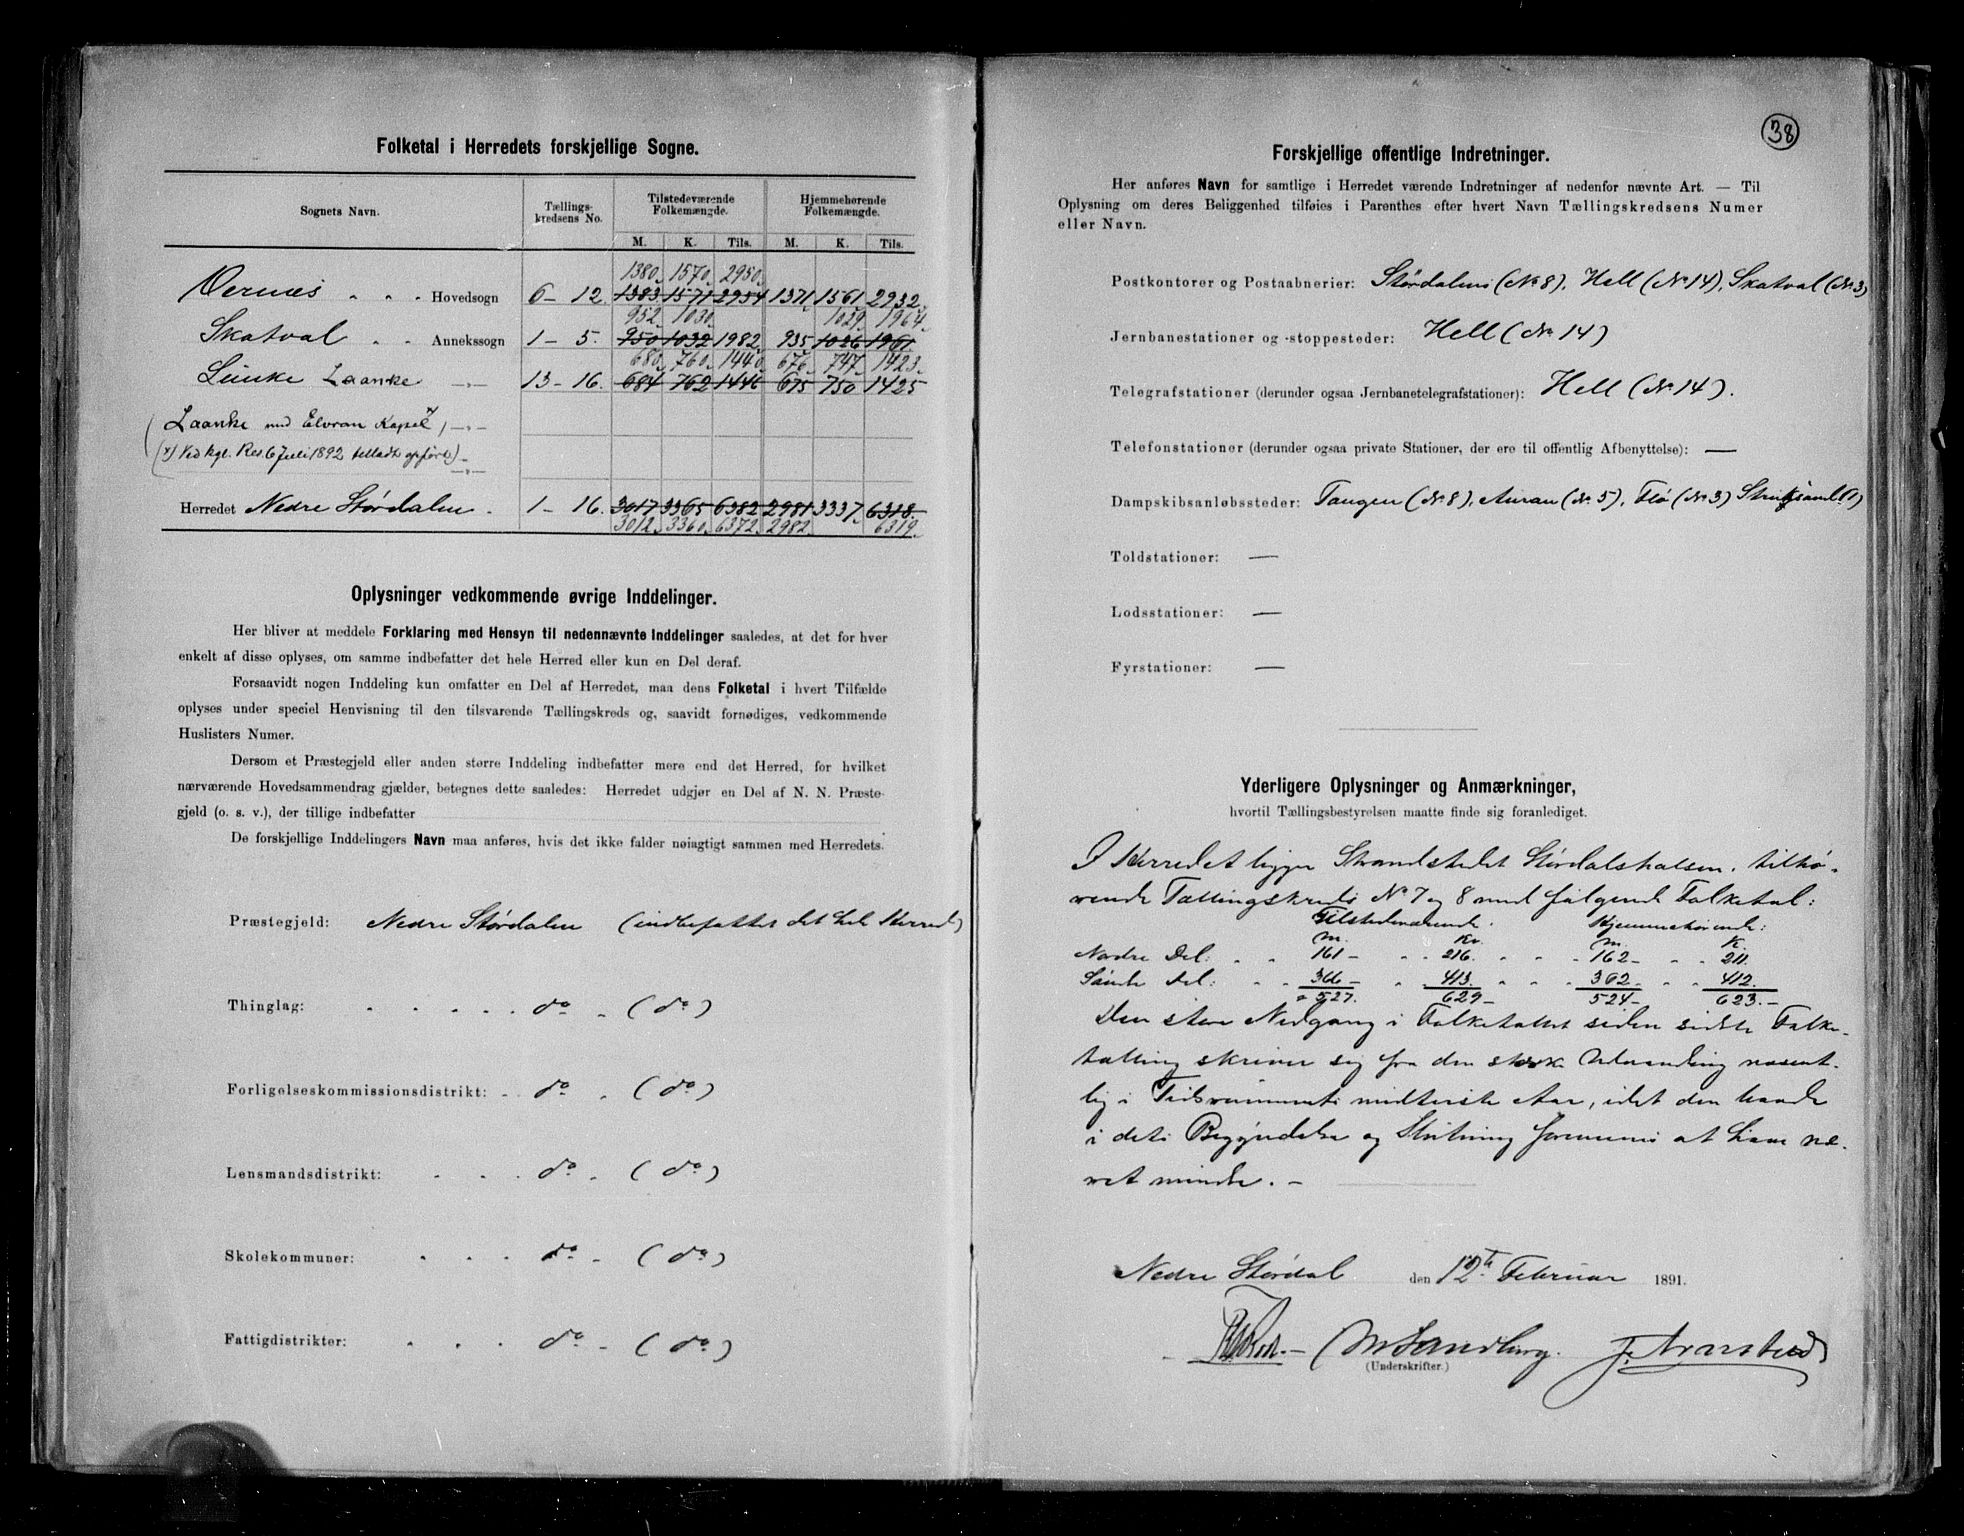 Folketal i Herredets forskjellige Sogne.
Sognets Navn.
Tællings-
kredsens No.
Tilstedeværende
Folkemængde.
Hjemmehørende
Folkemængde.
M. K. Tils. M. K. Tils.
1380. 1570. 2950.
Værnes " " Hovedsogn 6 - 12. 1383 1571 2954 1371 1561 2932.
952. 1030. 1029. 1964.
Skatval " " Annekssogn 1 - 5. 950 1032 1982 935 1026 1961
680. 760. 1440. 676. 747. 1423.
Lunke Laanke —„— 13 - 16. 684 762 1446 675 750 1425
Laanke med Elvran Kapel x) —„—
(x) Ved kgl. Res. 6 Juli 1892 tilladt opført) —„—
Herredet Nedre Stördalen. 1 - 16. 3017 3365 6382 2981 3337. 6318.
3012. 3360. 6372. 2982. 6319.
Oplysninger vedkommende øvrige Inddelinger.
Her bliver at meddele Forklaring med Hensyn til nedennævnte Inddelinger saaledes, at det for hver
enkelt af disse oplyses, om samme indbefatter det hele Herred eller kun en Del deraf.
Forsaavidt nogen Inddeling kun omfatter en Del af Herredet, maa dens Folketal i hvert Tilfælde
oplyses under speciel Henvisning til den tilsvarende Tællingskreds og, saavidt fornødiges, vedkommende
Huslisters Numer.
Dersom et Præstegjeld eller anden større Inddeling indbefatter mere end det Herred, for hvilket
nærværende Hovedsammendrag gjælder, betegnes dette saaledes: Herredet udgjør en Del af N. N. Præste-
gjeld (o. s. v.), der tillige indbefatter
De forskjellige Inddelingers Navn maa anføres, hvis det ikke falder nøiagtigt sammen med Herredets.
Præstegjeld: Nedre Stördalen (indbefatter det hele Herred)
Thinglag: do. (do.)
Forligelseskommissionsdistrikt: do. (do.)
Lensmandsdistrikt: do. (do.)
Skolekommuner: do. (do.)
Fattigdistrikter: do. (do.)
38
Forskjellige offentlige Indretninger.
Her anføres Navn for samtlige i Herredet værende Indretninger af nedenfor nævnte Art. — Til
Oplysning om deres Beliggenhed tilføies i Parenthes efter hvert Navn Tællingskredsens Numer
eller Navn.
Postkontorer og Postaabnerier: Stördalen (No 8), Hell (No 14), Skatval (No 3)
Jernbanestationer og -stoppesteder: Hell (No 14)
Telegrafstationer (derunder ogsaa Jernbanetelegrafstationer): Hell (No 14).
Telefonstationer (derunder ogsaa private Stationer, der ere til offentlig Afbenyttelse): —
Dampskibsanløbssteder: Tangen (No 8), Auran (No 5), Flö (No 3)
Toldstationer: —
Lodsstationer: —
Fyrstationer: —
Yderligere Oplysninger og Anmærkninger,
hvortil Tællingsbestyrelsen maatte finde sig foranlediget.
I Herredet ligger Strandstedet Stördalshalsen, tilhö-
rende Tællingskreds No 7 og 8 med fölgende Folketal:
Tilstedeværende. Hjemmehörende:
m. Kv. m. K.
Nordre Del: 161 - 216. 162 - 211.
Söndre Del: 366 - 413. 362 - 412.
527. 629 - 524 - 623. -
Den store Nedgang i Folketallet siden sidste Folke-
tælling skriver sig fra den stærke Udvandring væsent-
lig i Tidsrummets midterste Aar, idet den havde
i dets Begyndelse og Slutning formenes at have væ-
ret mindre. -
Nedre Stördal den 12te Februar 1891.
M Sandborg. J. Aarstad
(Underskrifter.)